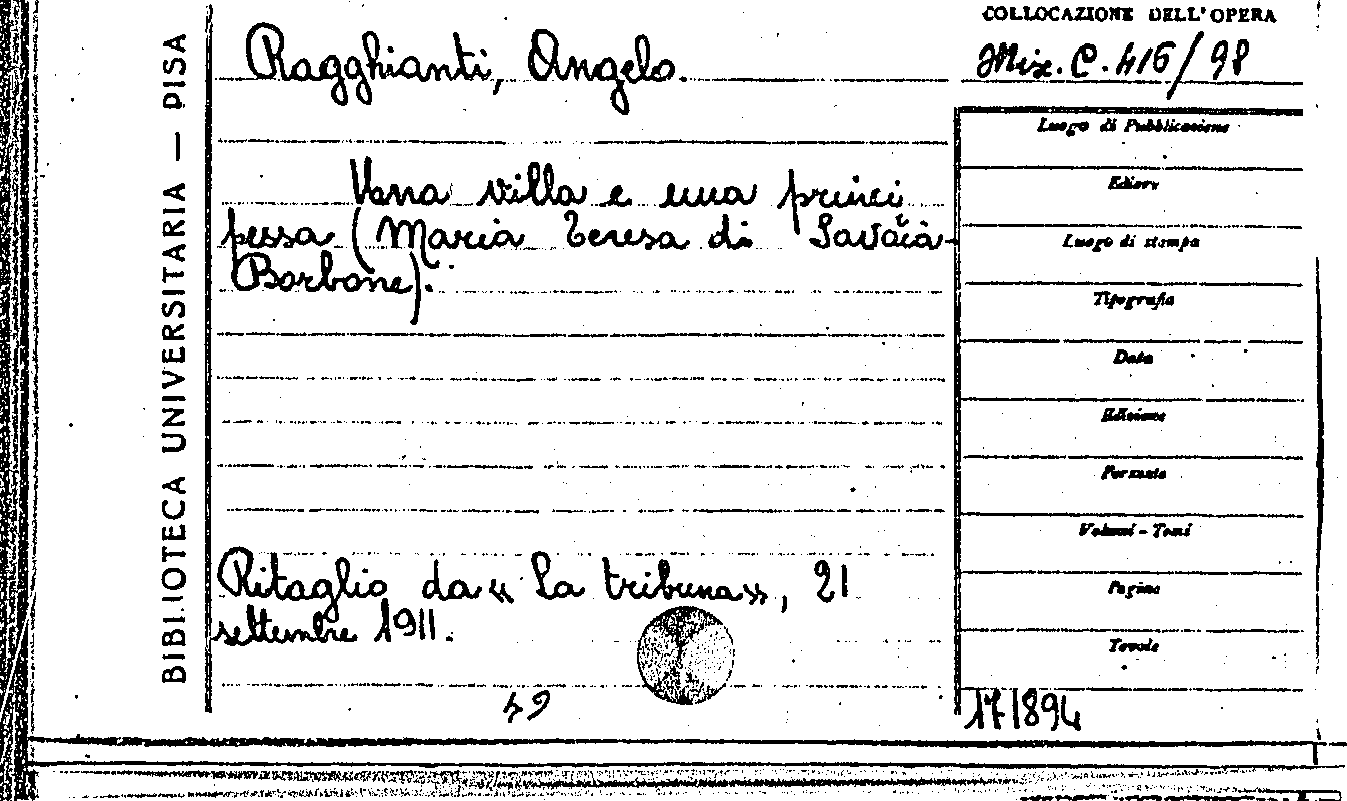 COLLOCAZIONE DELL'OPERA
Misc. C. 416/98
BIBLIOTECA UNIVERSITARIA — PISA
Ragghianti, Angelo.
una villa e una princi
pessa (Maria Teresa di Savoia-
Borbone).
Ritaglio da « La tribuna», 21
settembre 1911.
49
Luogo di Pubblicazione
Editore
Luogo di stampa
Tipografia
Data
Edizione
Formato
Volumi - Tomi
Pagine
Tavole
171894